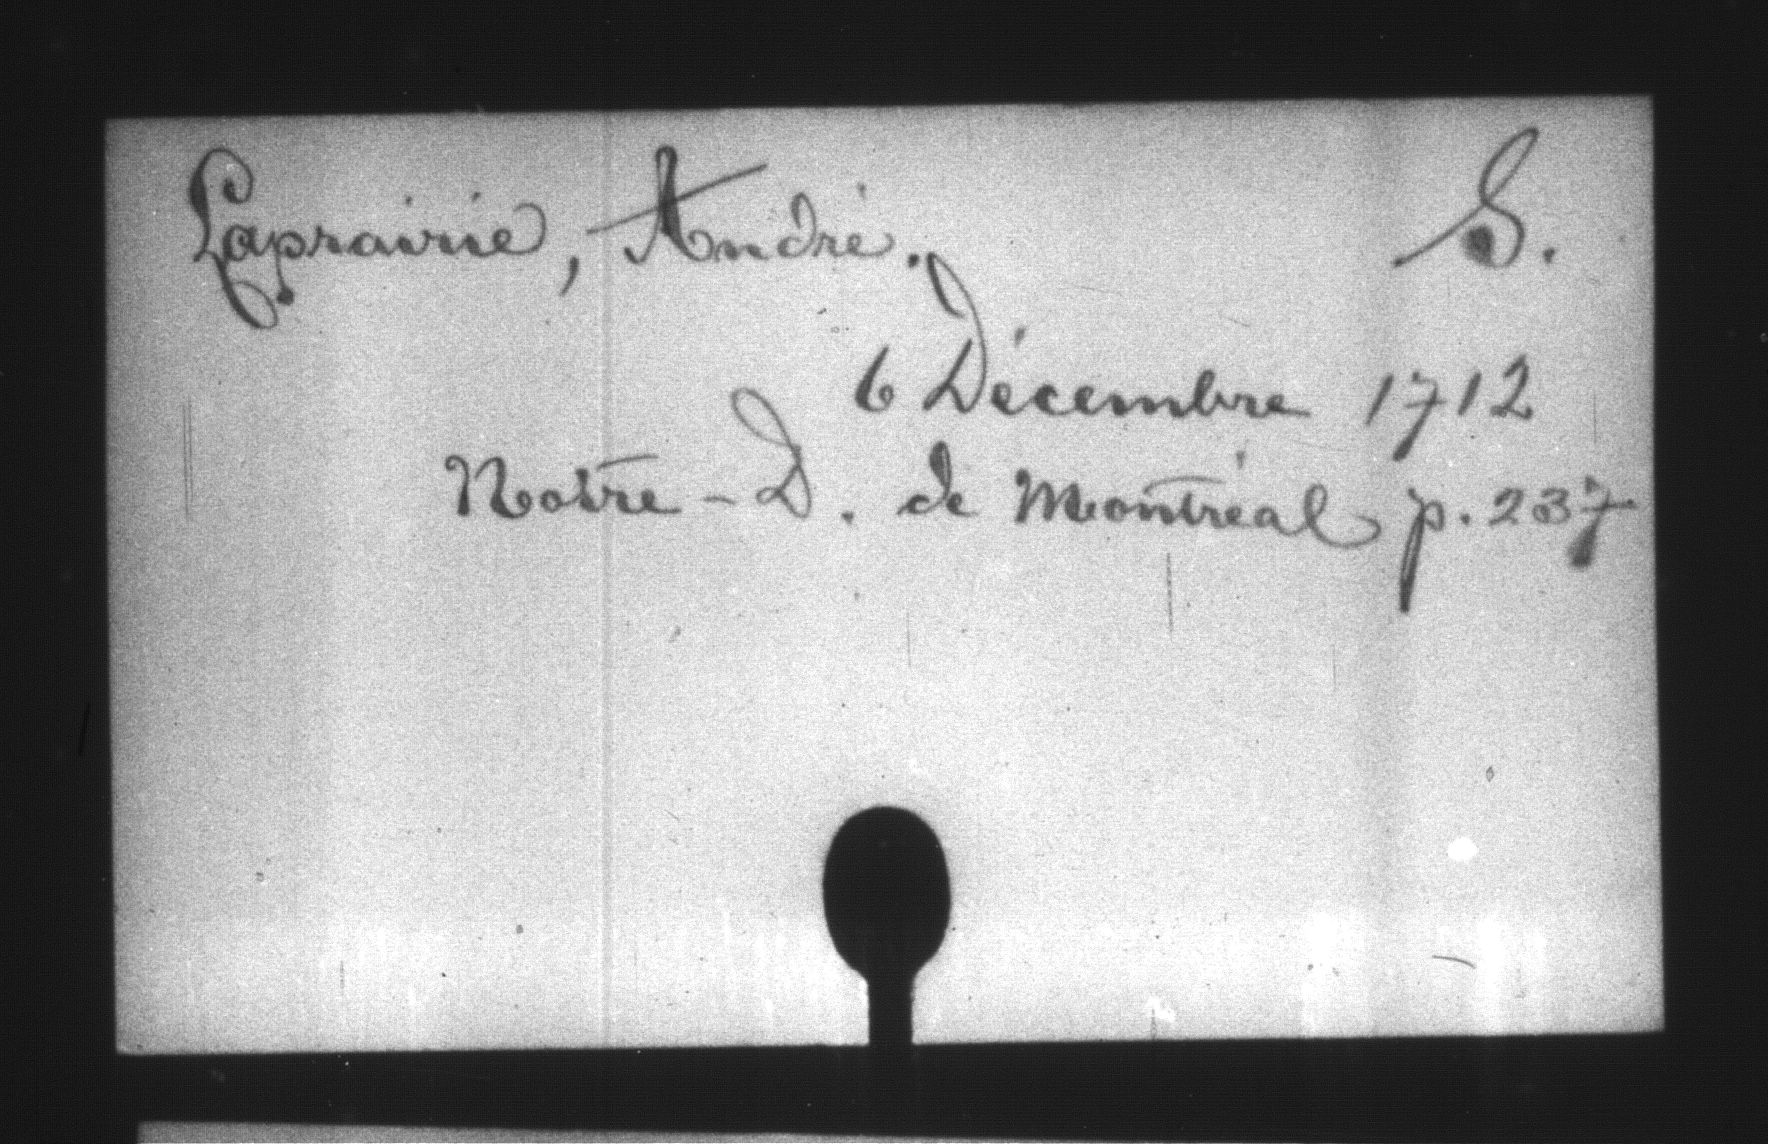 Laprairie, André. S.
6 Décembre 1712
Notre-D. de Montréal p. 237